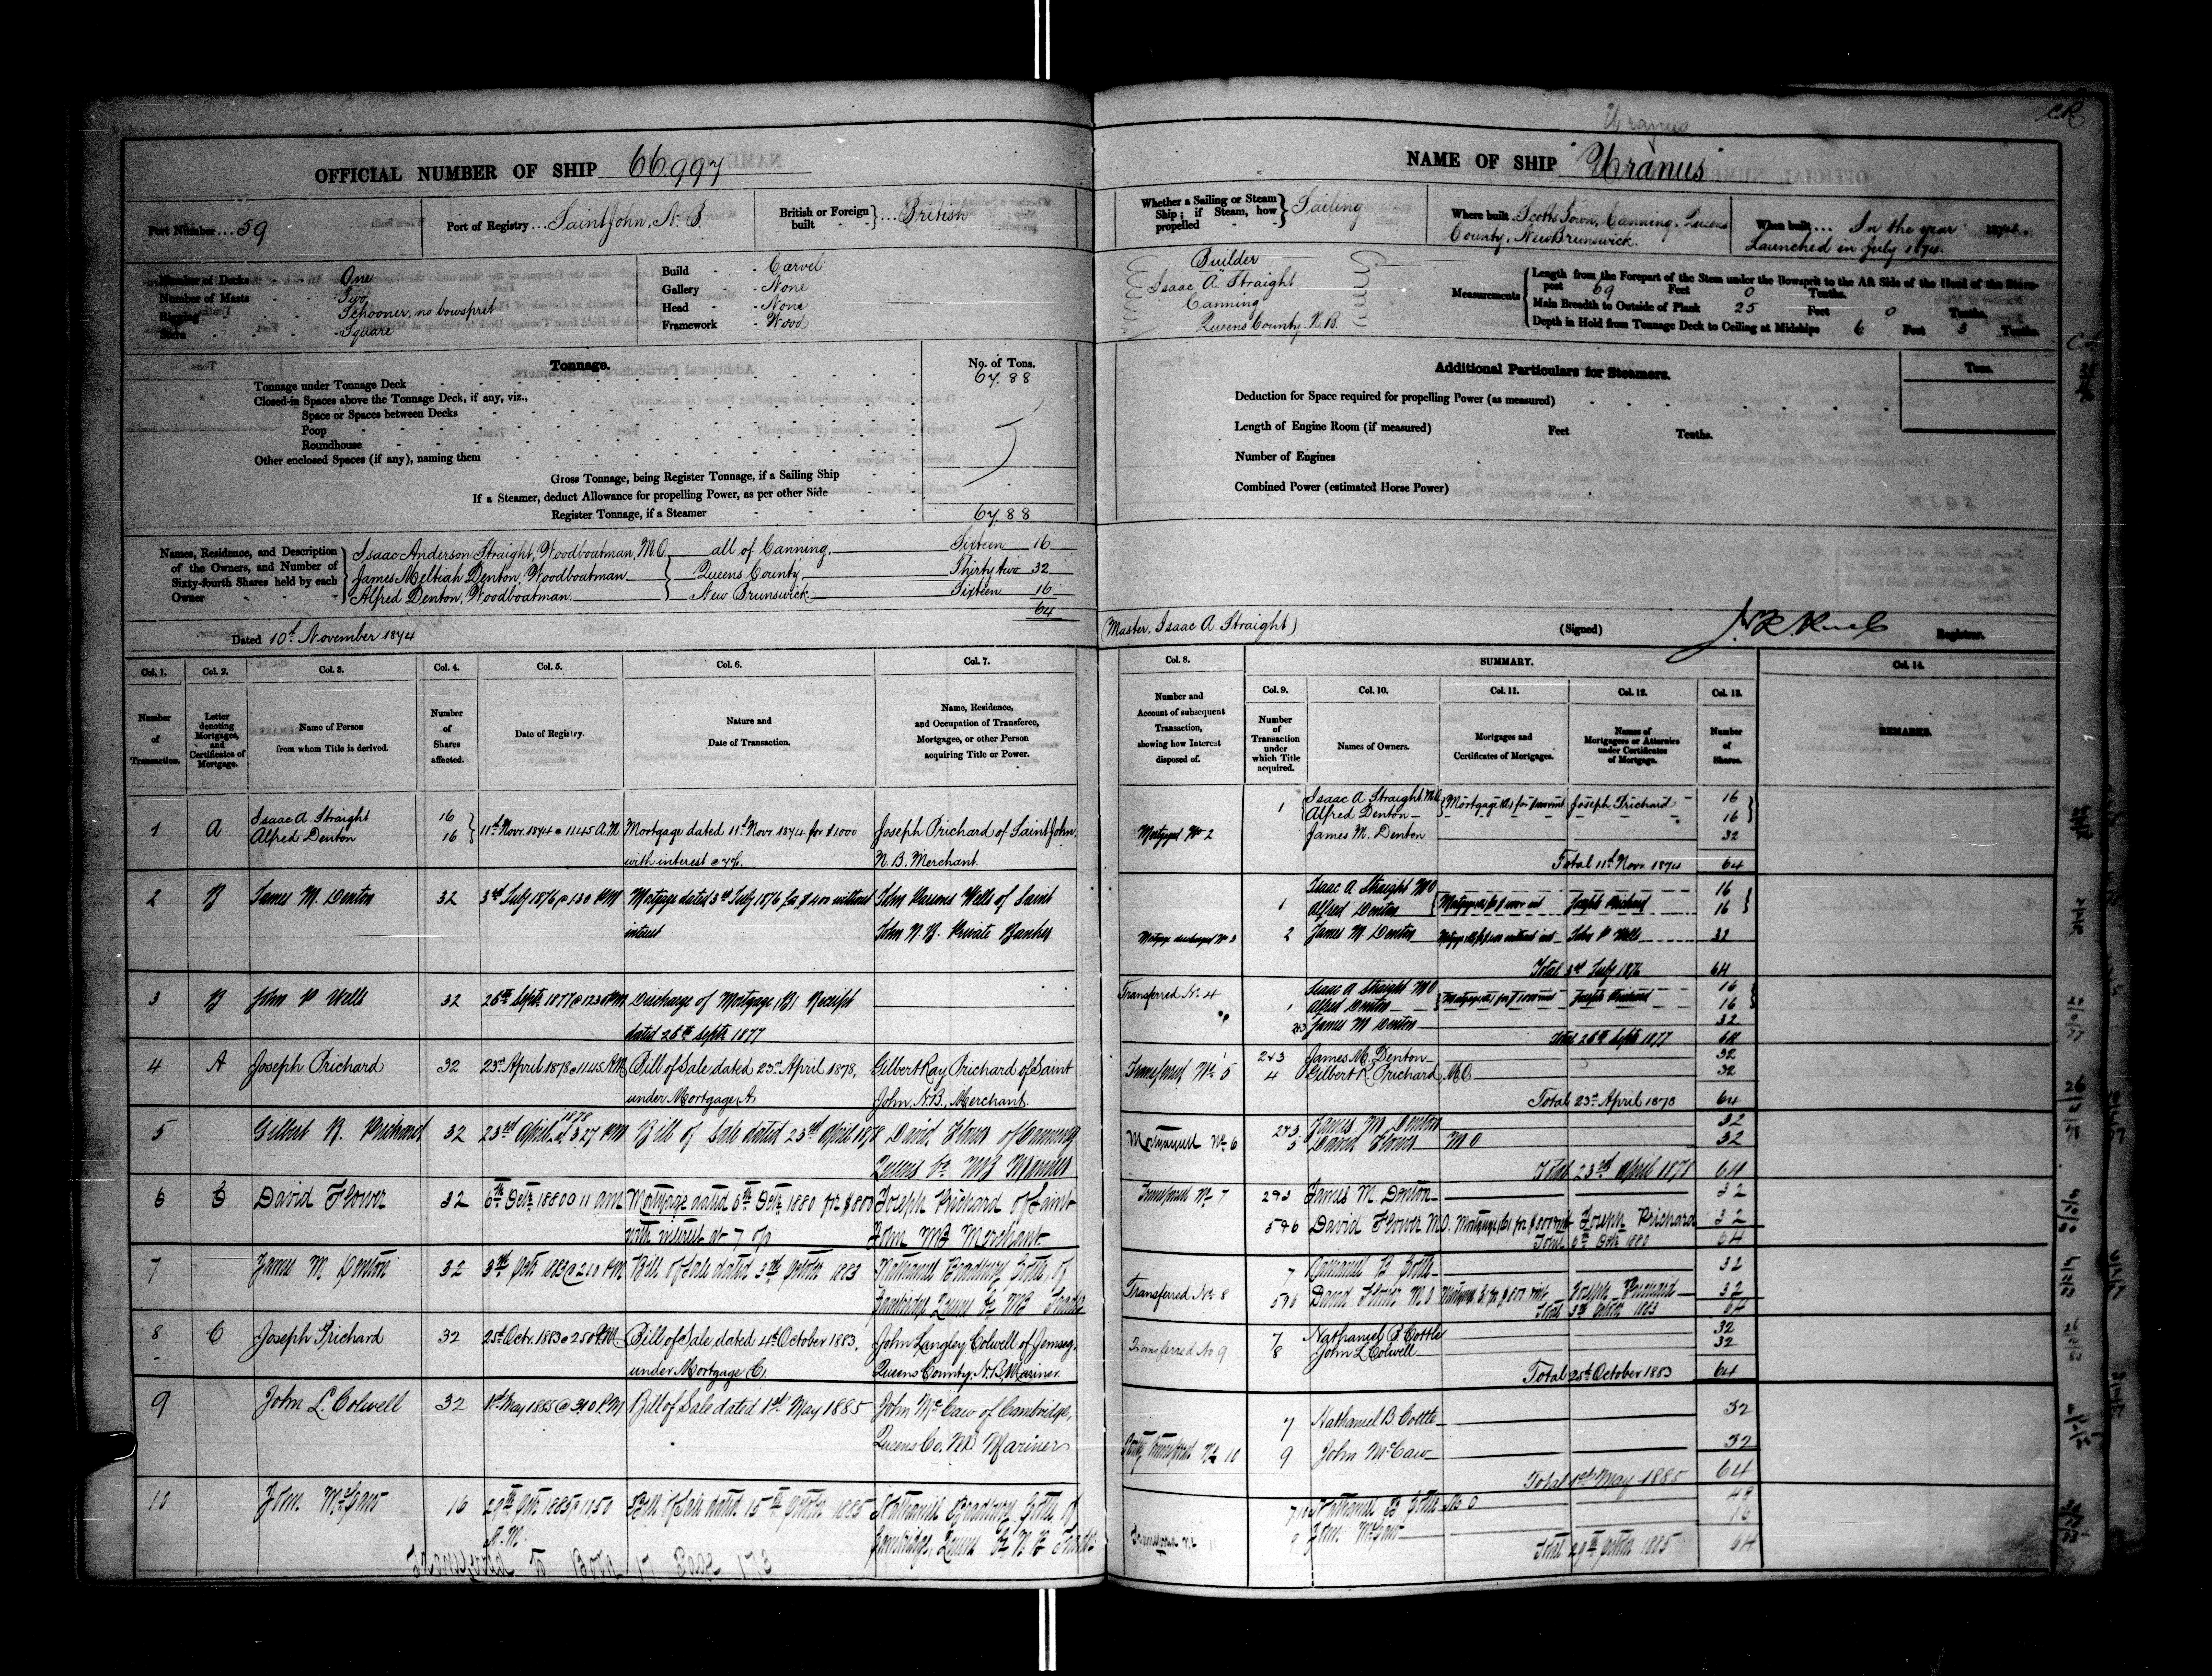 Uranus
C.R.
OFFICIAL NUMBER OF SHIP 66,997
NAME OF SHIP "Uranus"
Port Number ... 59
Port of Registry ... Saint John, N. B.
British or Foreign built ... British
Whether a Sailing or Steam Ship; if Steam, how propelled - - Sailing
Where built. Scotts Town, Canning, Queens County, New Brunswick.
When built ... In the year 1874. Launched in July 1874.
Number of Decks One
Number of Masts Two
Rigging Schooner, no bowsprit
Stern Square
Build - - Carvel
Gallery - None
Head - None
Framework - Wood
Builder
Isaac A. Straight
Canning
Queens County. N. B.
Measurements
Length from the Forepart of the Stem under the Bowsprit to the Aft Side of the Head of the Stern-post 69 Feet 0 Tenths.
Main Breadth to Outside of Plank 25 Feet 0 Tenths.
Depth in Hold from Tonnage Deck to Ceiling at Midships 6 Feet 3 Tenths.
Tonnage.
No. of Tons.
Tonnage under Tonnage Deck 67.88
Closed-in Spaces above the Tonnage Deck, if any, viz.,
Space or Spaces between Decks
Poop
Roundhouse
Other enclosed Spaces (if any), naming them
Gross Tonnage, being Register Tonnage, if a Sailing Ship
If a Steamer, deduct Allowance for propelling Power, as per other Side
Register Tonnage, if a Steamer 67.88
Additional Particulars for Steamers.
Tons.
Deduction for Space required for propelling Power (as measured)
Length of Engine Room (if measured) Feet Tenths.
Number of Engines
Combined Power (estimated Horse Power)
Names, Residence, and Description of the Owners, and Number of Sixty-fourth Shares held by each Owner
Isaac Anderson Straight, Woodboatman, M.O. all of Canning, Sixteen 16
James Meltiah Denton, Woodboatman Queens County, Thirty two 32
Alfred Denton, Woodboatman New Brunswick. Sixteen 16
64
Dated 10th November 1874
(Master, Isaac A. Straight)
(Signed) Registrar.
Col. 1. Col. 2. Col. 3. Col. 4. Col. 5. Col. 6. Col. 7.
Number of Transaction.
Letter denoting Mortgages, and Certificates of Mortgage.
Name of Person from whom Title is derived.
Number of Shares affected.
Date of Registry.
Nature and Date of Transaction.
Name, Residence, and Occupation of Transferee, Mortgagee, or other Person acquiring Title or Power.
Col. 8. SUMMARY. Col. 14.
Col. 9. Col. 10. Col. 11. Col. 12. Col. 13.
Number and Account of subsequent Transaction, showing how Interest disposed of.
Number of Transaction under which Title acquired.
Names of Owners.
Mortgages and Certificates of Mortgages.
Names of Mortgagees or Attornies under Certificates of Mortgage.
Number of Shares.
REMARKS.
1 A Isaac A Straight 16
Alfred Denton 16 11th Nov. 1874 @ 11 45 A.M. Mortgage dated 11th Novr 1874 for $1000 Joseph Prichard of Saint John,
with interest @ 7%. N. B. Merchant.
2 B James M. Denton 32 3rd July 1876 @ 1 30 PM Mortgage dated 3rd July 1876 for $400 without John Parsons Wells of Saint
interest John N. B. Private Banker
3 B John P Wells 32 26th Septr 1877 @ 12 30 PM Discharge of Mortgage, B, Receipt
dated 26th Septr 1877
4 A Joseph Prichard 32 23rd April 1878 @ 11 45 A.M. Bill of Sale dated 23rd April 1878, Gilbert Ray Prichard of Saint
under Mortgage, A. John, N.B., Merchant.
5 Gilbert R. Prichard 32 23rd April 1878 at 3 27 PM Bill of Sale dated 23rd April 1878 David Flower of Canning
Queens Co NB Mariner
6 C David Flower 32 6th Octr 1880 @ 11 AM Mortgage dated 6th Octr 1880 for $800 Joseph Prichard of Saint
with interest at 7 o/o John NB Merchant
7 James M Denton 32 3rd Octr 1883 @ 2 10 PM Bill of Sale dated 3rd October 1883 Nathaniel Bradbury Cottle, of
Cambridge Queens Co NB Trader
8 C Joseph Prichard 32 25th Octr. 1883 @ 2 50 P.M. Bill of Sale, dated 4th October 1883, John Langley Colwell of Jemseg,
under Mortgage C. Queens County, N.B. Mariner.
9 John L. Colwell 32 1st May 1885 @ 3 10 P.M Bill of Sale dated 1st May 1885 John McCaw of Cambridge,
Queens Co. NB Mariner
10 John McCaw 16 29th Octr 1885 @ 11.50 A.M. Bill of Sale dated 15th October 1885 Nathaniel Bradbury Cottle, of
Cambridge, Queens Co N B Trader
Transferred to Book 17 Page 173
1 Isaac A Straight M.O. Mortgage (A) for $1000 & int Joseph Prichard 16
Alfred Denton 16
Mortgaged No 2 James M. Denton 32
Total 11th Novr 1874 64
1 Isaac A Straight M O 16
Alfred Denton Joseph Prichard 16
Mortgage discharged No 3 2 James M Denton John P Wells 32
Total 3rd July 1876 64
Transferred No 4 Isaac A Straight M O 16
1 Alfred Denton Joseph Prichard 16
2&3 James M Denton 32
Total 26th Septr 1877 64
2&3 James M. Denton 32
Transferred No 5 4 Gilbert R Prichard, M.O. 32
Total 23rd April 1878 64
2&3 James M Denton 32
Mortgaged No 6 5 David Flower M O 32
Total 23rd April 1878 64
Transferred No 7 2&3 James M. Denton 32
5&6 David Flower M.O. Joseph Prichard 32
Total 6th Octr 1880 64
7 Nathaniel B Cottle 32
Transferred No 8 5&6 David Flower M O Joseph Prichard 32
Total 3rd October 1883 64
7 Nathaniel B. Cottle 32
Transferred No 9 8 John L Colwell 32
Total 25th October 1883 64
7 Nathaniel B Cottle 32
Partly Transferred No 10 9 John McCaw 32
Total 1st May 1885 64
7&10 Nathaniel B Cottle M O 48
9 John McCaw 16
Total 29th October 1885 64